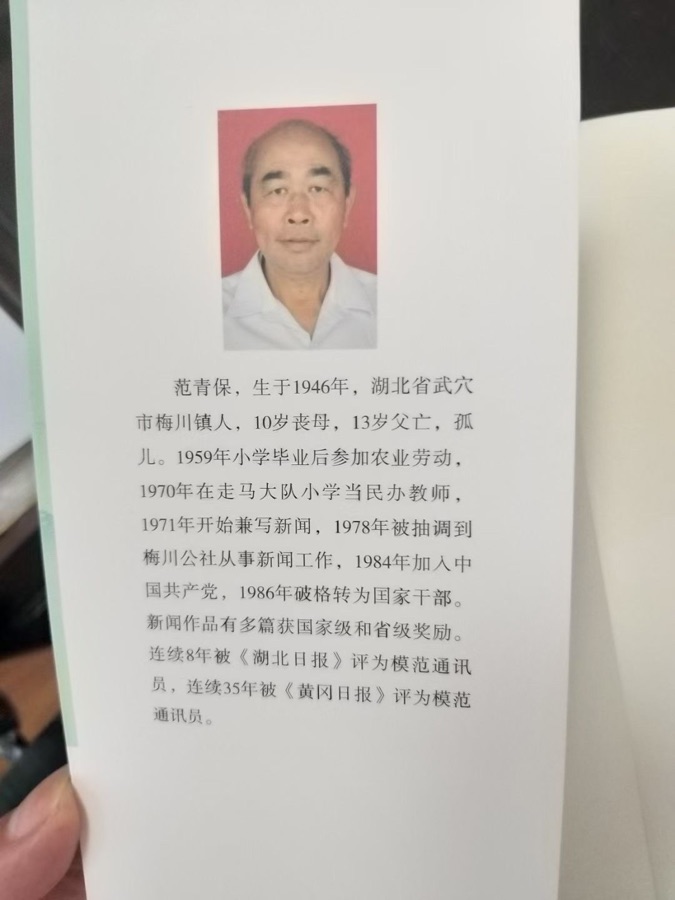 范青保，生于1946年，湖北省武穴
市梅川镇人，10岁丧母，13岁父亡，孤
儿。1959年小学毕业后参加农业劳动，
1970年在走马大队小学当民办教师，
1971年开始兼写新闻，1978年被抽调到
梅川公社从事新闻工作，1984年加入中
国共产党，1986年破格转为国家干部。
新闻作品有多篇获国家级和省级奖励。
连续8年被《湖北日报》评为模范通讯
员，连续35年被《黄冈日报》评为模范
通讯员。